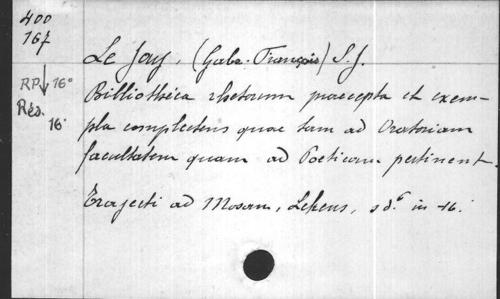 400
167
Le Jay, (Gabr. François) S.J.
RP 16°
Bibliothéca rhetorum praecepta et exem-
Rés.
16.
pla complectens quae tam ad Oratoriam
facultatem quam ad Poeticam pertinent.
Trajecti ad Mosam, Lekens, s d. in-16.